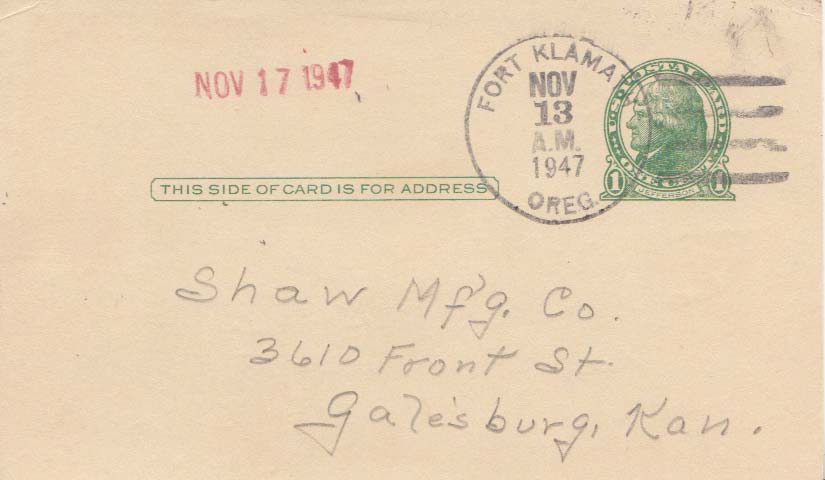 NOV 17 1947
FORT KLAMA
NOV
13
A.M.
1947
OREG.
U.S. POSTAL CARD
ONE CENT
1 JEFFERSON 1
THIS SIDE OF CARD IS FOR ADDRESS
Shaw Mf'g. Co.
3610 Front St.
Galesburg, Kan.